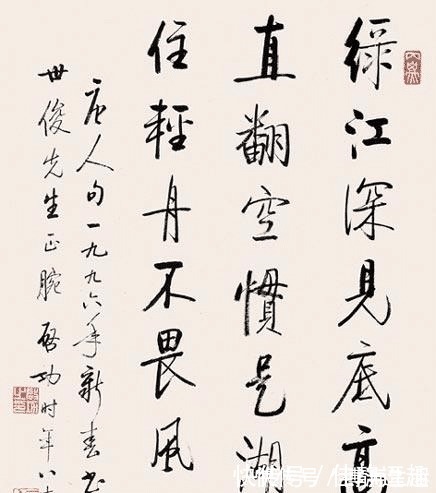 緑江深見底高
直翻空慣是湖
住輕舟不畏風
唐人句一九九六年新春書
世俊先生正腕 啓功时年八十